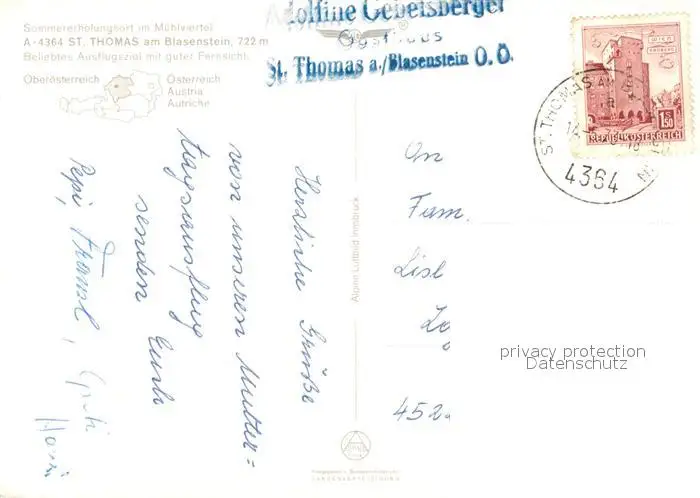 Sommererholungsort im Mühlviertel
A-4364 ST. THOMAS am Blasenstein, 722 m
Beliebtes Ausflugsziel mit guter Fernsicht.
Oberösterreich
Österreich
Austria
Autriche
Adolfine Gebetsberger
Gasthaus
St. Thomas a./Blasenstein O. Ö.
WIEN
REPUBLIK ÖSTERREICH
1.50
ST. THOMAS AM
4364
Herzliche Grüße
von unserem Mutter=
tagsausflug
senden Euch
Pepi, Franzl,
Alpine Luftbild Innsbruck
An
Fam.
Lisl
452
privacy protection
Datenschutz